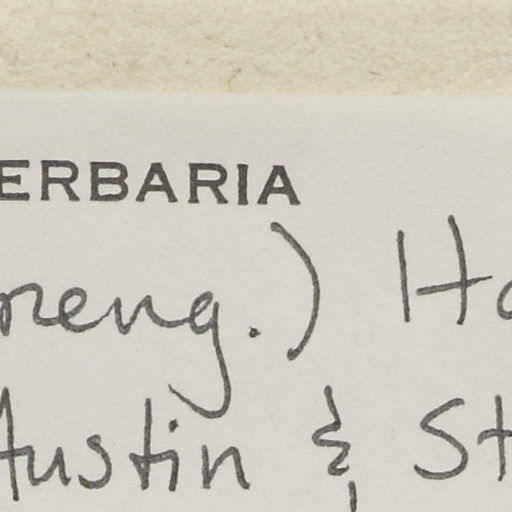 ERBARIA
reng.) Ha
Austin & St